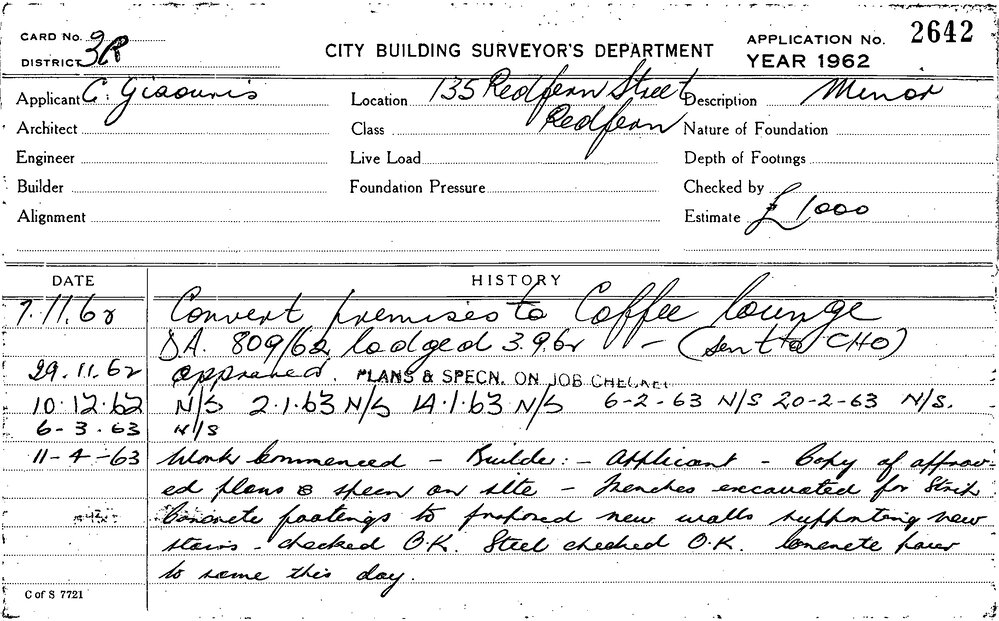 CARD No. 9
DISTRICT 3R
CITY BUILDING SURVEYOR'S DEPARTMENT
APPLICATION No. 2642
YEAR 1962
Applicant C. Giaouris
Location 135 Redfern Street
Redfern
Description Minor
Architect
Class
Nature of Foundation
Engineer
Live Load
Depth of Footings
Builder
Foundation Pressure
Checked by
Alignment
Estimate £1000
DATE HISTORY
7.11.62 Convert premises to Coffee lounge
DA. 809/62 lodged 3.9.62 - (sent to CHO)
29.11.62 approved. PLANS & SPECN. ON JOB CHECKED
10.12.62 N/S 2.1.63 N/S 14.1.63 N/S 6-2-63 N/S 20-2-63 N/S.
6-3.63 N/S
11-4-63 Work Commenced - Builder:- Applicant - Copy of approv-
ed plans & specn on site - Trenches excavated for Strip
Concrete footings to proposed new walls supporting new
stairs - checked O.K. Steel checked O.K. Concrete pour
to same this day.
C of S 7721